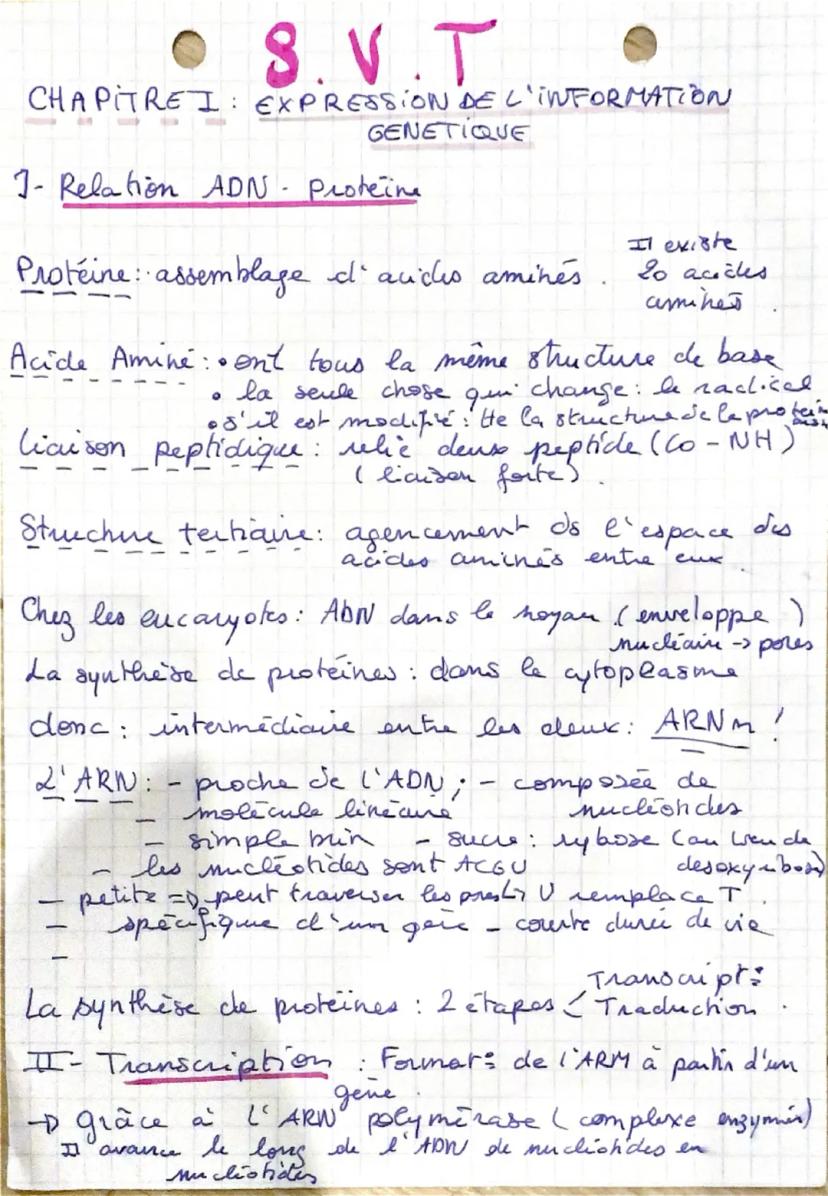 S.V.T
CHAPITRE I : EXPRESSION DE L'INFORMATION
GENETIQUE
I- Relation ADN - Protéine
Il existe
Protéine : assemblage d'acides aminés . 20 acides
aminés .
Acide Aminé : • ont tous la même structure de base
• la seule chose qui change : le radical
• s'il est modifié : tte la structure de la protéine
Liaison peptidique : relie deux peptide (CO - NH)
(liaison forte) .
Structure tertiaire : agencement ds l'espace des
acides aminés entre eux .
Chez les eucaryotes : ADN dans le noyau (enveloppe )
nucléaire -> pores
La synthèse de protéines : dans le cytoplasme
donc : intermédiaire entre les deux : ARNm !
L'ARN : - proche de l'ADN ; - composée de
- molécule linéaire nucléotides
- simple brin - sucre : rybose (au lieu de
- les nucléotides sont ACGU desoxyribose)
- petite => peut traverser les pores ↳ U remplace T .
- spécifique d'un gène - courte durée de vie
-
Transcript°
La synthèse de protéines : 2 étapes < Traduction .
II- Transcription : Format° de l'ARM à partir d'un
gène .
-> grâce à l'ARN polymérase (complexe enzymes)
Il avance le long de l'ADN de nucléotides en
nucléotides